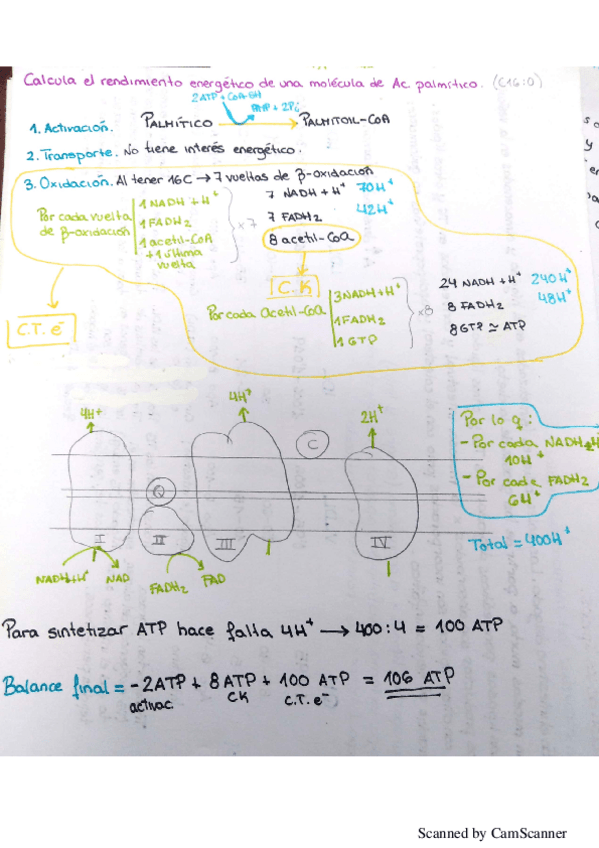 Calcula el rendimiento energético de una molécula de Ac. palmítico. (C16:0)
2ATP + CoA-SH
PALMÍTICO → PALMITOIL-CoA
1. Activación.
2. Transporte. No tiene interés energético.
3. Oxidación. Al tener 16C → 7 vueltas de β-oxidación
Por cada vuelta de β-oxidación
1 NADH + H+
1 FADH2
1 acetil-CoA
+ 1 última vuelta
x7
7 NADH + H+ 70H+
7 FADH2 42H+
8 acetil-CoA
C.K
C.T. e-
Por cada Acetil-CoA
3NADH + H+
1 FADH2
1 GTP
x8
24 NADH + H+ 240H+
8 FADH2 48H+
8GTP ≃ ATP
4H+
4H+
2H+
C
Q
I
II
III
IV
NADH+H+
NAD
FADH2
FAD
Por lo q:
- Por cada NADH2
10H+
- Por cada FADH2
6H+
Total = 400H+
Para sintetizar ATP hace falta 4H+ → 400:4 = 100 ATP
Balance final = -2ATP + 8ATP + 100 ATP = 106 ATP
activac. CK C.T.e-
Scanned by CamScanner